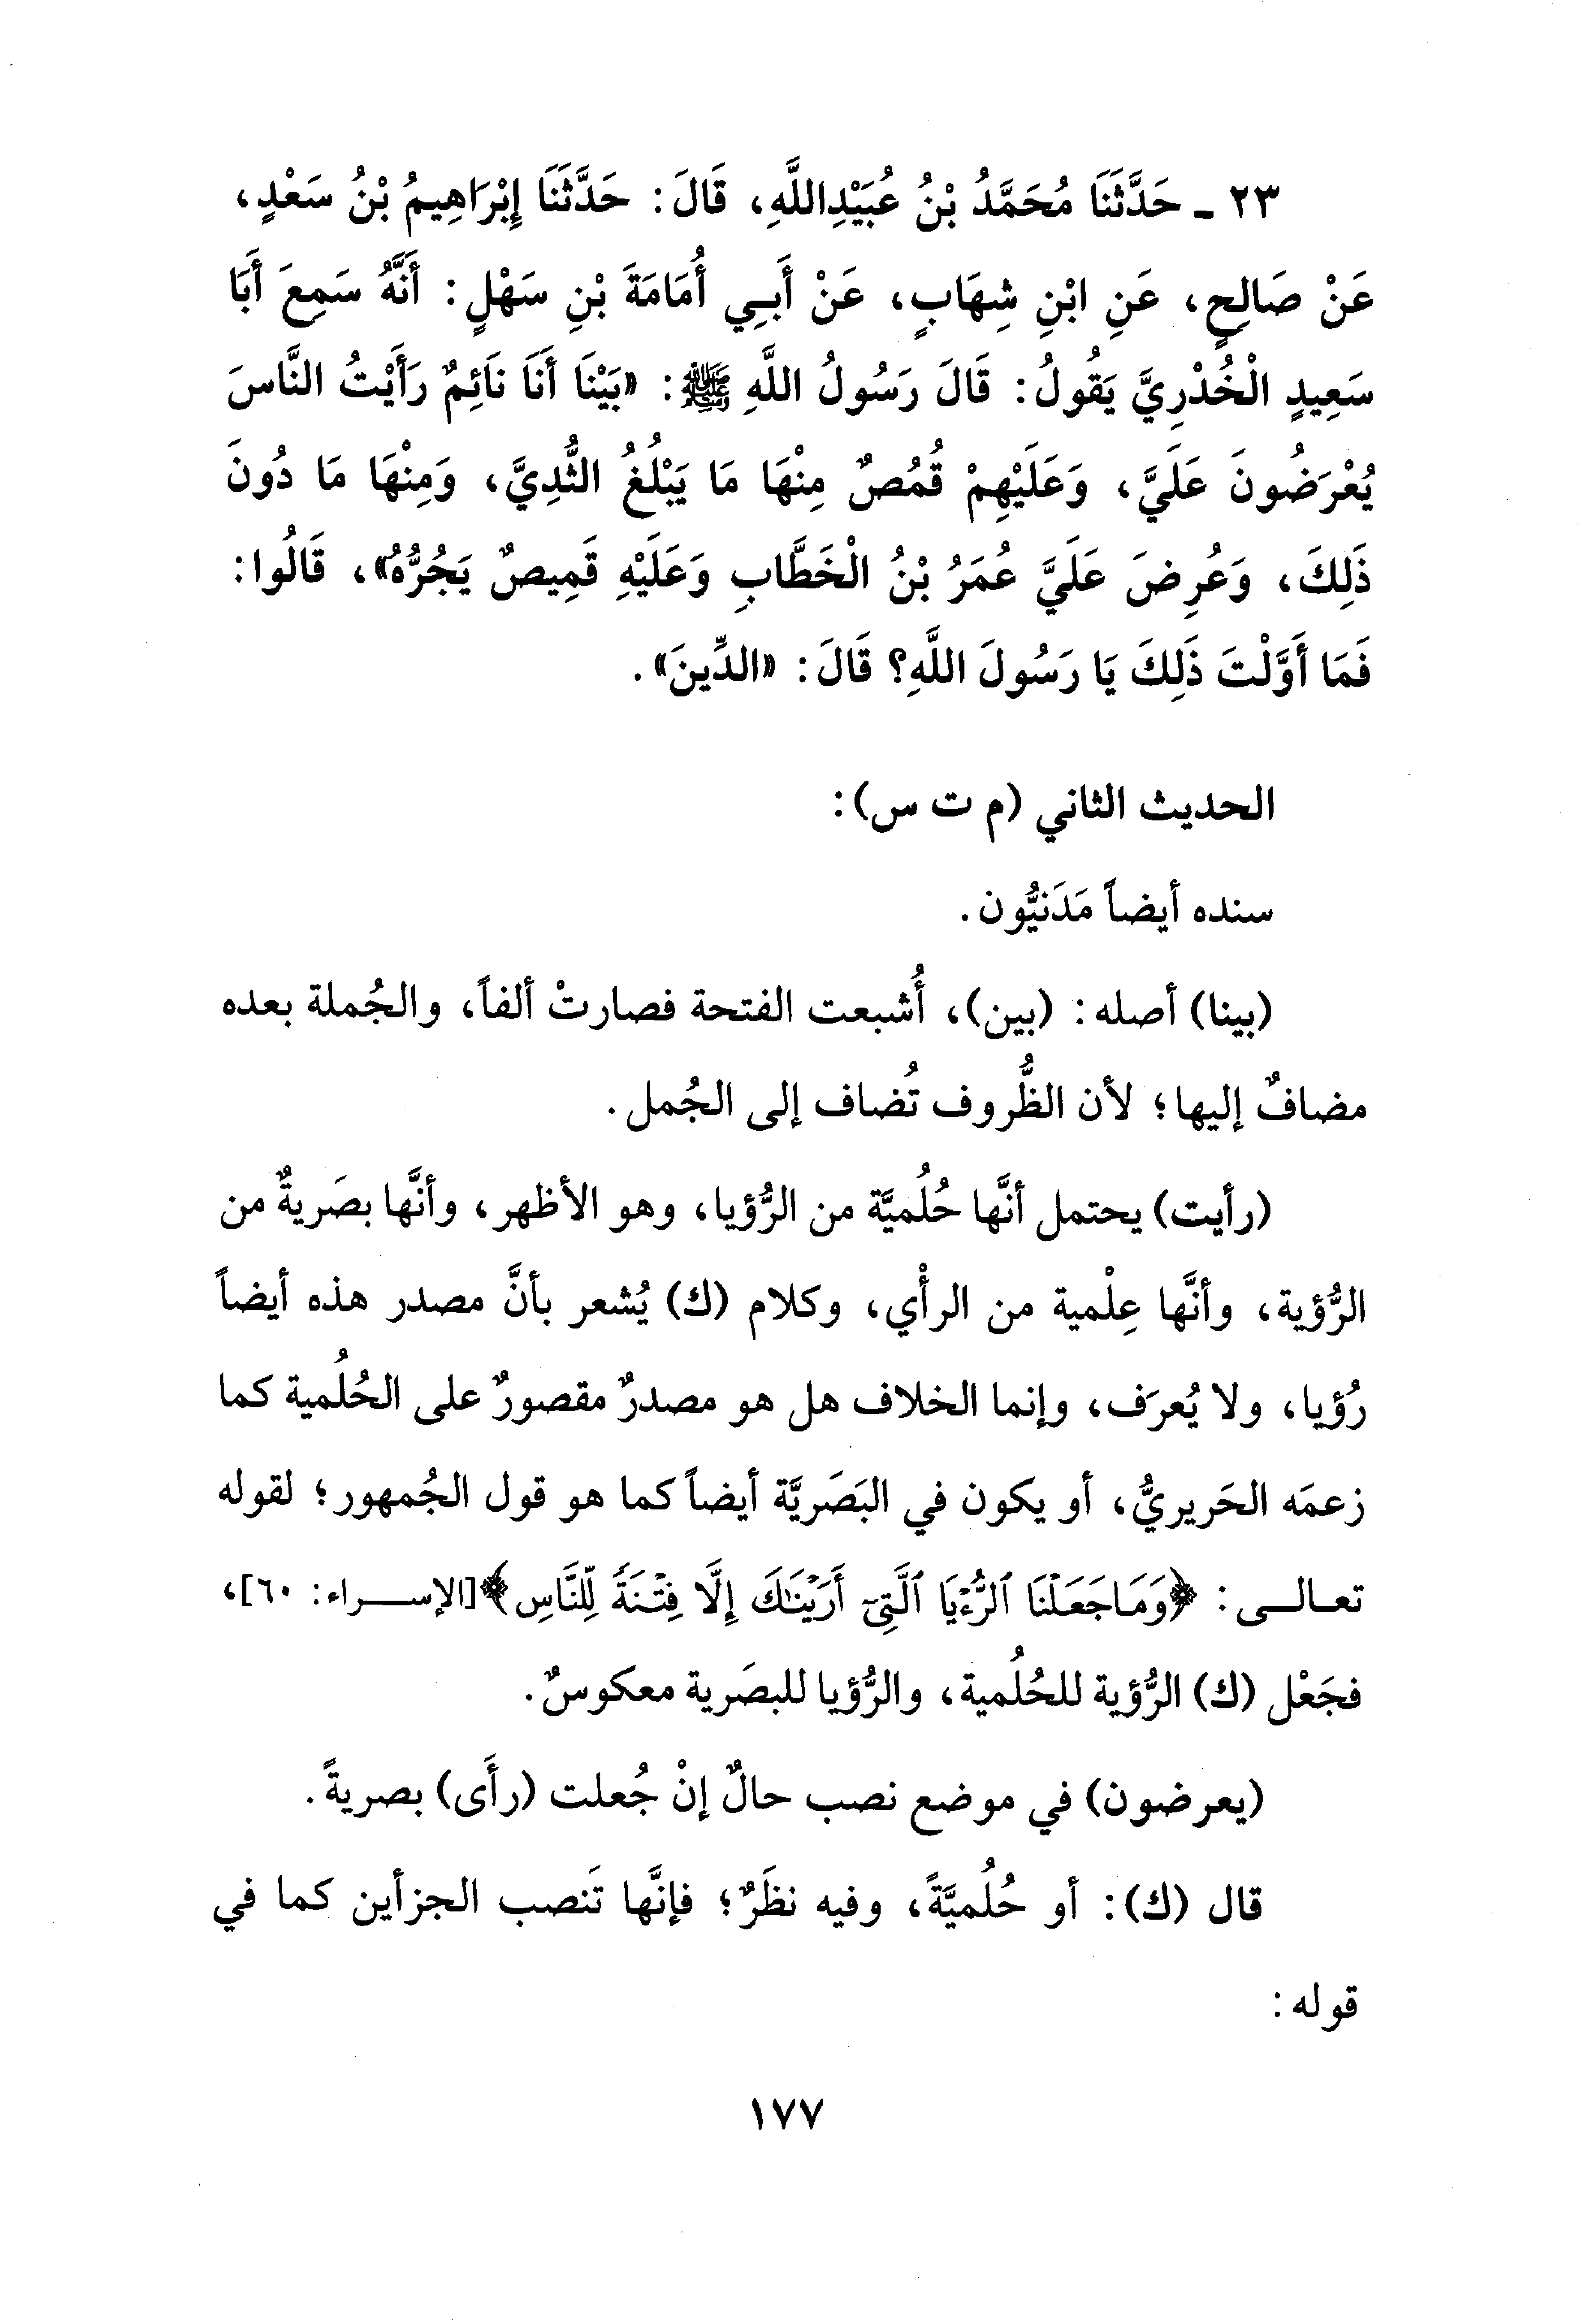 ٢٣ - حَدَّثَنَا مُحَمَّدُ بْنُ عُبَيْدِاللَّهِ، قَالَ: حَدَّثَنَا إِبْرَاهِيمُ بْنُ سَعْدٍ،
عَنْ صَالِحٍ، عَنِ ابْنِ شِهَابٍ، عَنْ أَبِي أُمَامَةَ بْنِ سَهْلٍ: أَنَّهُ سَمِعَ أَبَا
سَعِيدٍ الْخُدْرِيَّ يَقُولُ: قَالَ رَسُولُ اللَّهِ ﷺ: «بَيْنَا أَنَا نَائِمٌ رَأَيْتُ النَّاسَ
يُعْرَضُونَ عَلَيَّ، وَعَلَيْهِمْ قُمُصٌ مِنْهَا مَا يَبْلُغُ الثُّدِيَّ، وَمِنْهَا مَا دُونَ
ذَلِكَ، وَعُرِضَ عَلَيَّ عُمَرُ بْنُ الْخَطَّابِ وَعَلَيْهِ قَمِيصٌ يَجُرُّهُ»، قَالُوا:
فَمَا أَوَّلْتَ ذَلِكَ يَا رَسُولَ اللَّهِ؟ قَالَ: «الدِّينَ».
الحديث الثاني (م ت س):
سنده أيضاً مَدَنيُّون.
(بينا) أصله: (بين)، أُشبعت الفتحة فصارتْ ألفاً، والجُملة بعده
مضافٌ إليها؛ لأن الظُّروف تُضاف إلى الجُمل.
(رأيت) يحتمل أنَّها حُلُميَّة من الرُّؤيا، وهو الأظهر، وأنَّها بصَريةٌ من
الرُّؤية، وأنَّها عِلْمية من الرأْي، وكلام (ك) يُشعر بأنَّ مصدر هذه أيضاً
رُؤيا، ولا يُعرَف، وإنما الخلاف هل هو مصدرٌ مقصورٌ على الحُلُمية كما
زعمَه الحَريريُّ، أو يكون في البَصَريَّة أيضاً كما هو قول الجُمهور؛ لقوله
تعالى: ﴿وَمَا جَعَلْنَا ٱلرُّءْيَا ٱلَّتِىٓ أَرَيْنَٰكَ إِلَّا فِتْنَةً لِّلنَّاسِ﴾[الإسراء: ٦٠]،
فجَعْل (ك) الرُّؤية للحُلُمية، والرُّؤيا للبصَرية معكوسٌ.
(يعرضون) في موضع نصب حالٌ إنْ جُعلت (رأَى) بصريةً.
قال (ك): أو حُلُميَّةً، وفيه نظَرٌ؛ فإنَّها تَنصب الجزأين كما في
قوله:
١٧٧